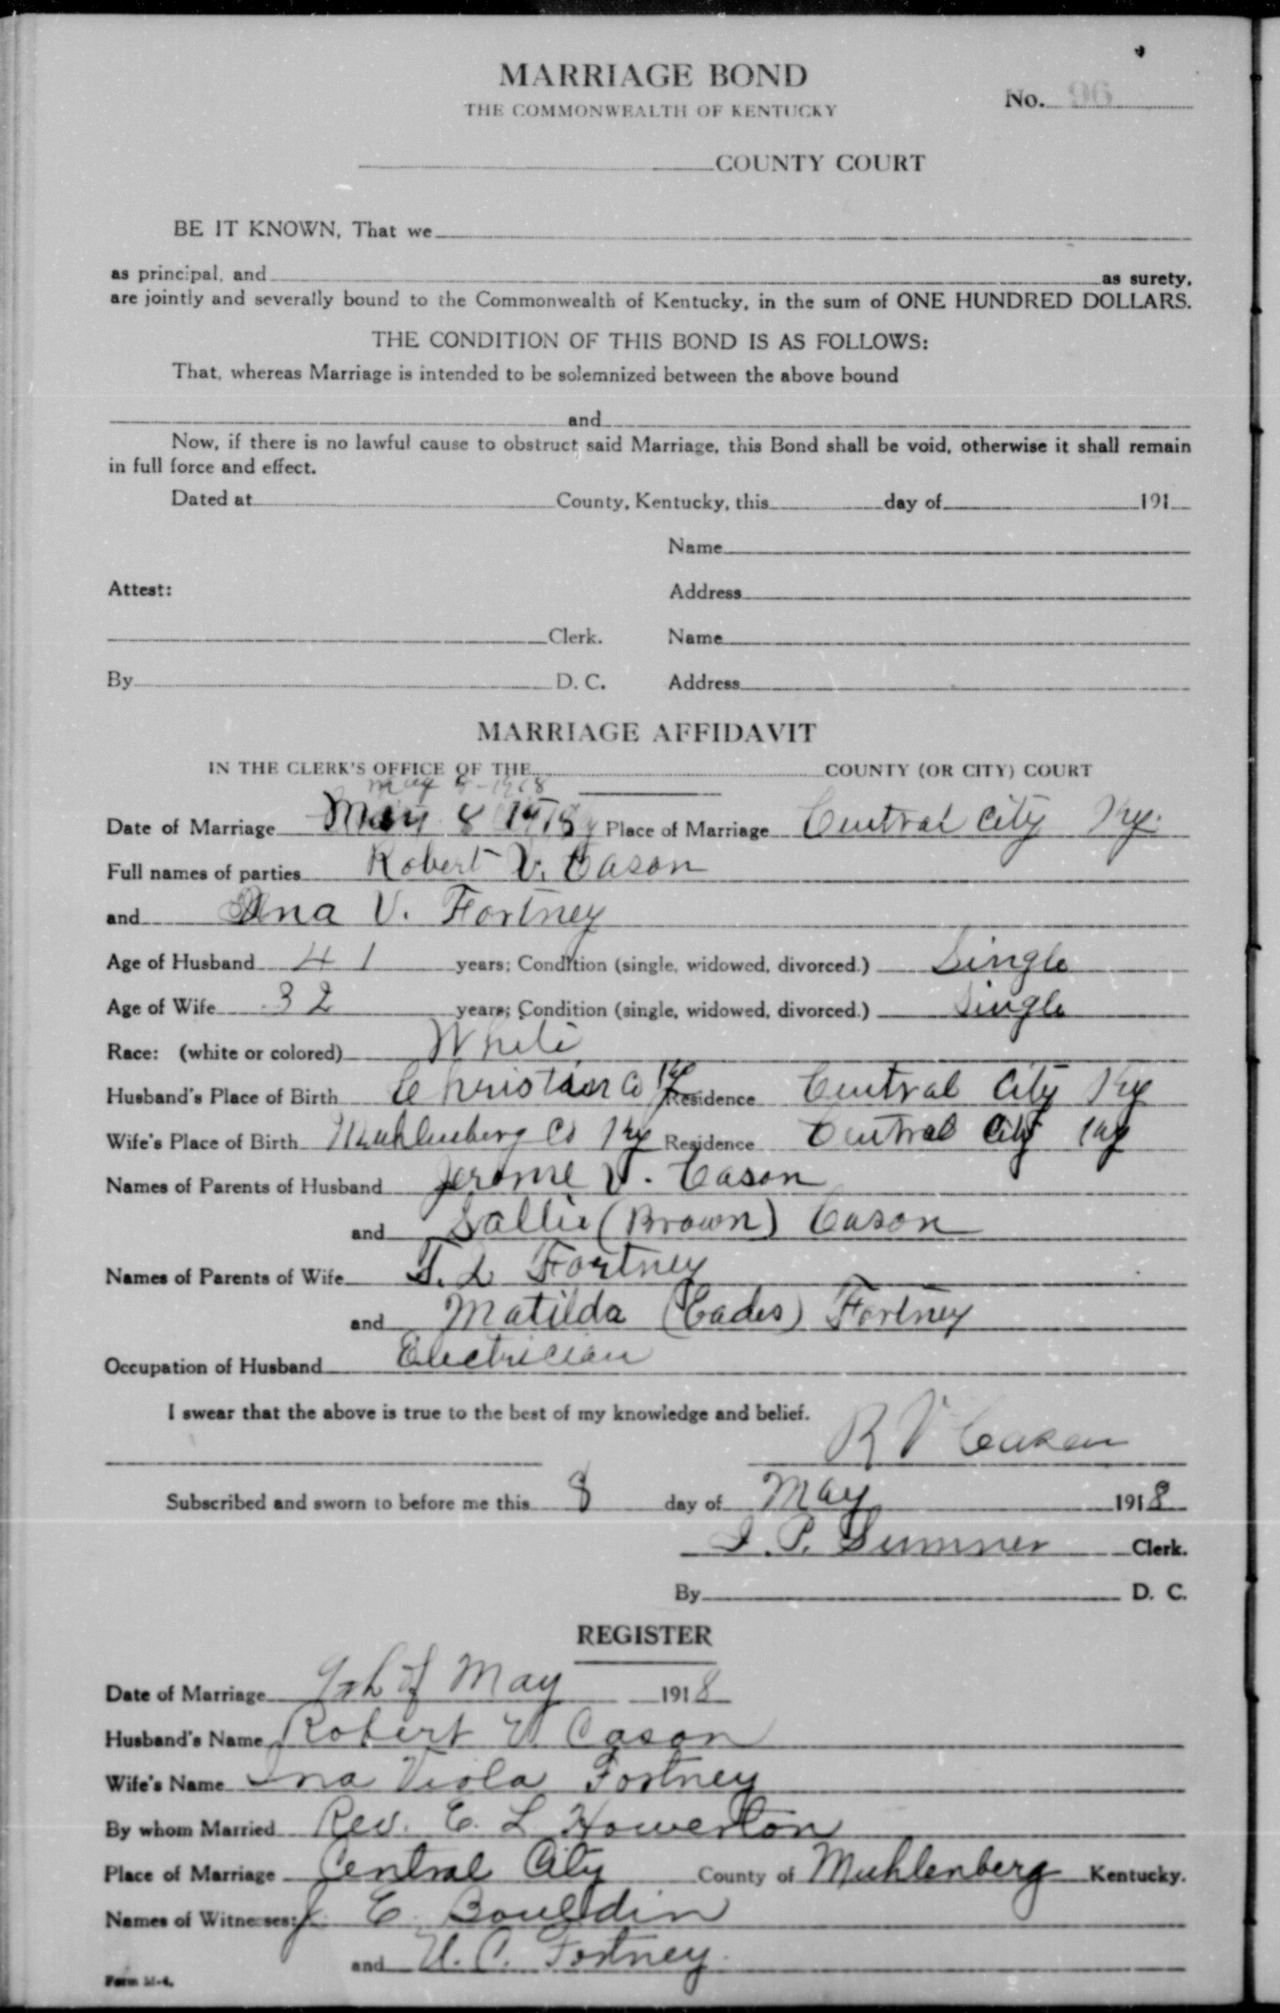 MARRIAGE BOND
THE COMMONWEALTH OF KENTUCKY
No. 96
COUNTY COURT
BE IT KNOWN, That we
as principal, and as surety,
are jointly and severally bound to the Commonwealth of Kentucky, in the sum of ONE HUNDRED DOLLARS.
THE CONDITION OF THIS BOND IS AS FOLLOWS:
That, whereas Marriage is intended to be solemnized between the above bound
and
Now, if there is no lawful cause to obstruct said Marriage, this Bond shall be void, otherwise it shall remain
in full force and effect.
Dated at County, Kentucky, this day of 191
Name
Attest: Address
Clerk. Name
By D. C. Address
MARRIAGE AFFIDAVIT
IN THE CLERK'S OFFICE OF THE COUNTY (OR CITY) COURT
May 8-1918
Date of Marriage May 8 1918 Place of Marriage Central City Ky.
Full names of parties Robert V. Cason
and Ina V. Fortney
Age of Husband 41 years; Condition (single, widowed, divorced.) Single
Age of Wife 32 years; Condition (single, widowed, divorced.) Single
Race: (white or colored) White
Husband's Place of Birth Christian Co Ky Residence Central City Ky
Wife's Place of Birth Muhlenberg Co Ky Residence Central City Ky
Names of Parents of Husband Jerome V. Cason
and Sallie (Brown) Cason
Names of Parents of Wife T. L Fortney
and Matilda (Eades) Fortney
Occupation of Husband Electrician
I swear that the above is true to the best of my knowledge and belief.
R V Cason
Subscribed and sworn to before me this 8 day of May 1918
I. P. Sumner Clerk.
By D. C.
REGISTER
Date of Marriage of May 1918
Husband's Name Robert V. Cason
Wife's Name Ina Viola Fortney
By whom Married Rev. E. L Howerton
Place of Marriage Central City County of Muhlenberg Kentucky.
Names of Witnesses: J. E. Bouldin
and U. C. Fortney.
Form M-4.